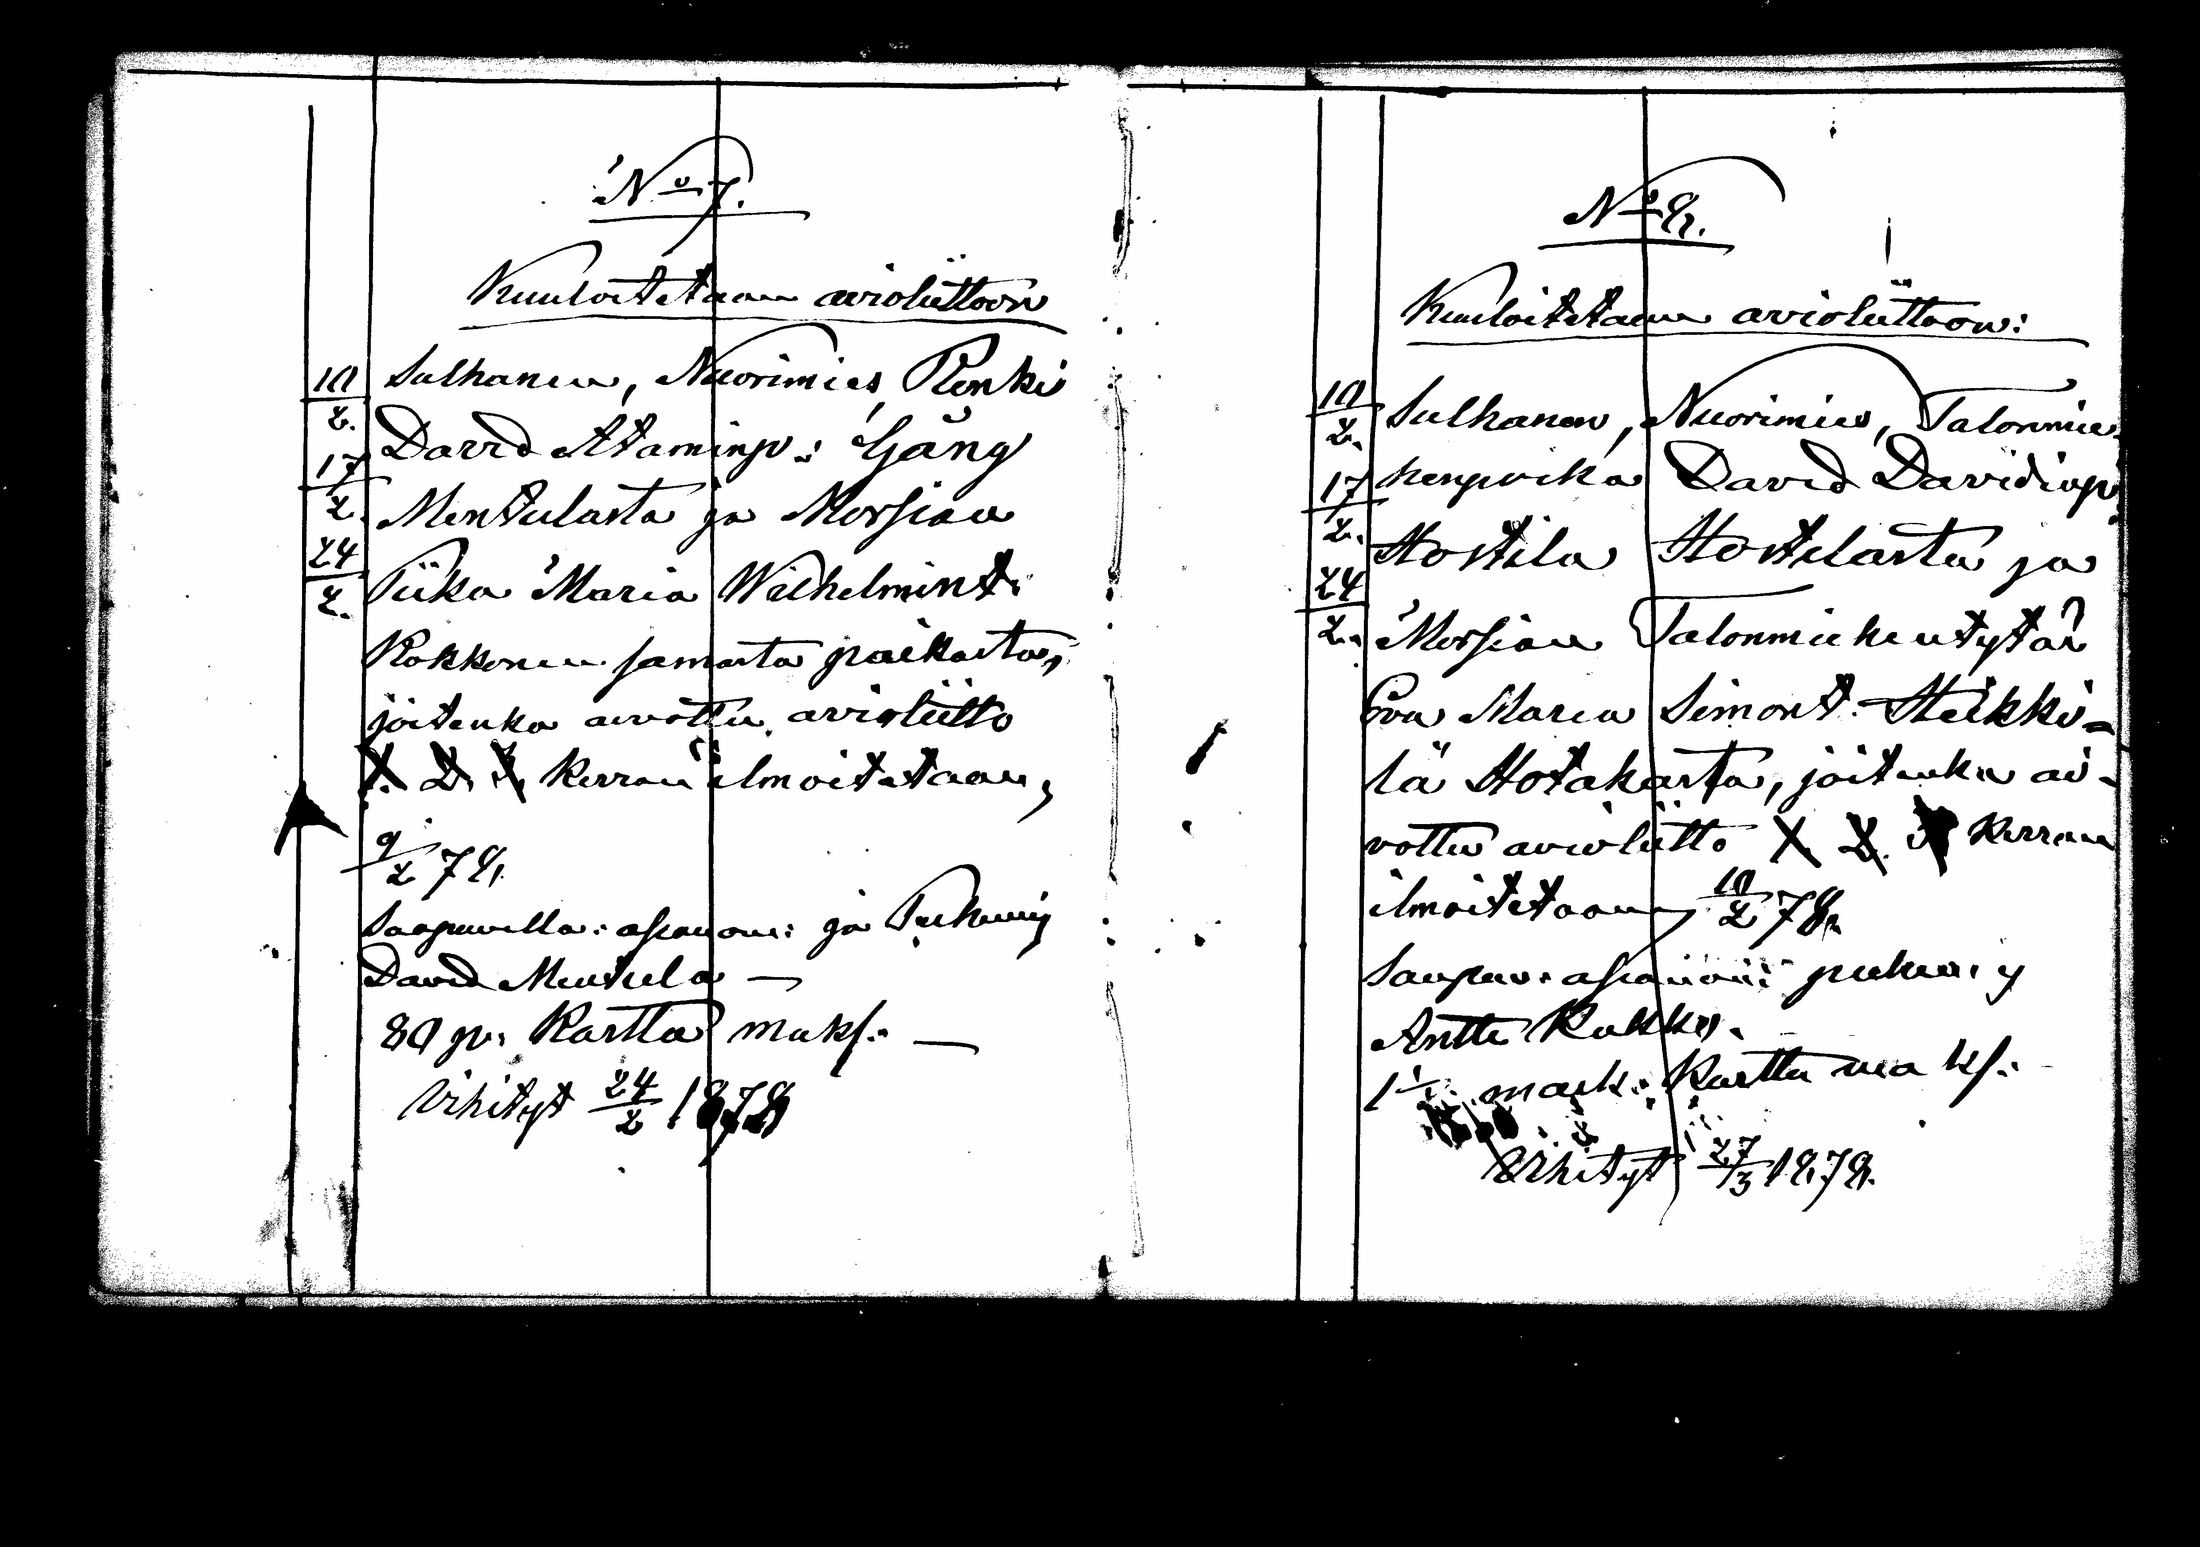 No 7.
Kuuloitetaan avioliittoon
10/2. Sulhanen, Nuorimies, Renki
David Adaminp: Gäng
17/2. Mentulasta ja Morsian
24/2. Piika Maria Wilhelmint.
Kokkonen samasta paikasta,
joitenka aivottu avioliitto
1. 2. 3. Kerran ilmoitetaan,
9/2 78.
Saapuvilla: asianom: ja
David Mentula —
80 p. Kartta maks: —
Vihityt 24/2 1878
No 8.
Kuuloitetaan avioliittoon:
10/2. Sulhanen, Nuorimies, Talonmie
17/2. David Davidinp:
Hostila Hostilasta ja
24/2. Morsian Talonmiehentytär
Eva Maria Simont. Heikki-
lä Hotakasta, joitenka ai-
vottu avioliitto 1. 2. 3. Kerran
ilmoitetaan 10/2 78.
Saapuv: asianom:
Antti Kukko.
mark: Kartta maks:
Vihityt 27/3 1878.